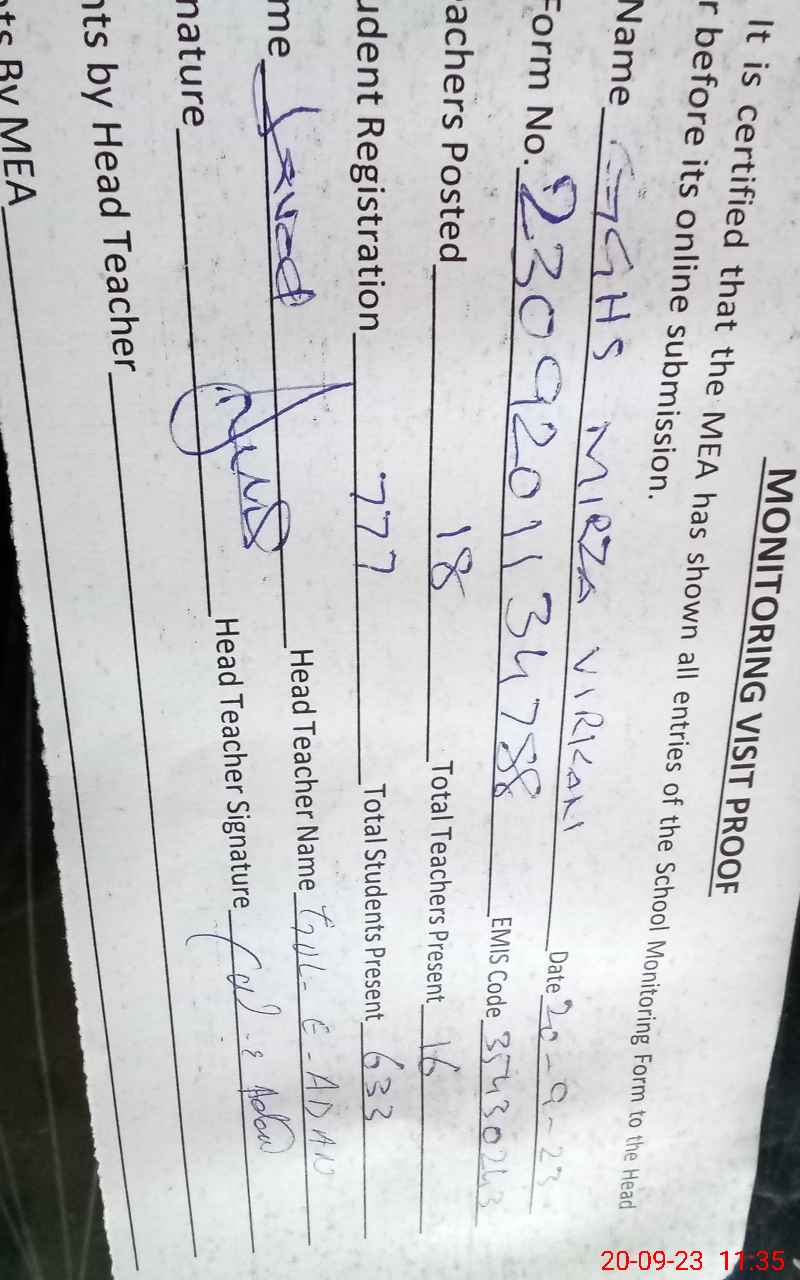 MONITORING VISIT PROOF
It is certified that the MEA has shown all entries of the School Monitoring Form to the Head
r before its online submission.
Name GGHS MIRZA VIRKAN Date 20-9-23
Form No. 2309201134788 EMIS Code 35430243
achers Posted 18 Total Teachers Present 16
udent Registration 777 Total Students Present 633
me Javed Head Teacher Name GUL-E-ADAN
nature Head Teacher Signature
nts by Head Teacher
ts By MEA
20-09-23 11:35